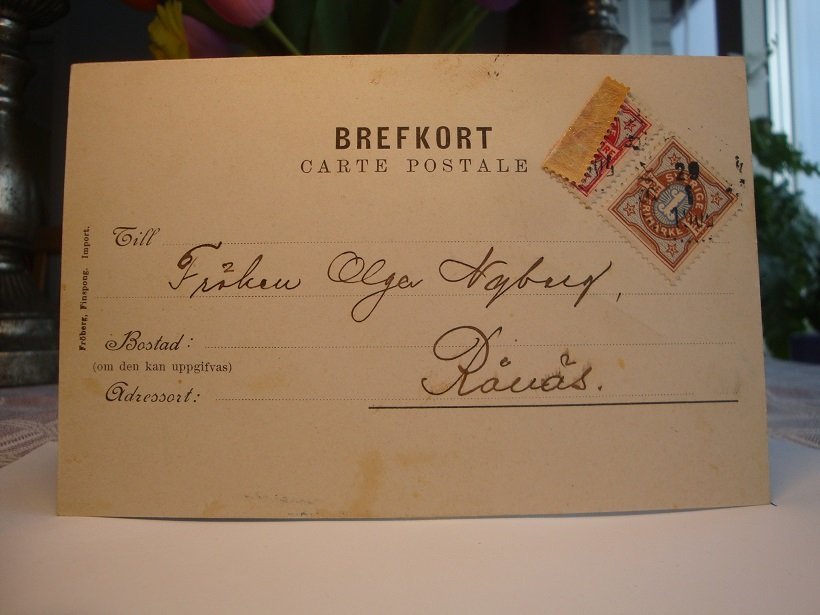 BREFKORT
CARTE POSTALE
Till
Fröken Olga Nyberg,
Bostad:
(om den kan uppgifvas)
Rönås.
Adressort:
Fröberg, Finspong. Import.
SVERIGE
FRIMÄRKE
1
29